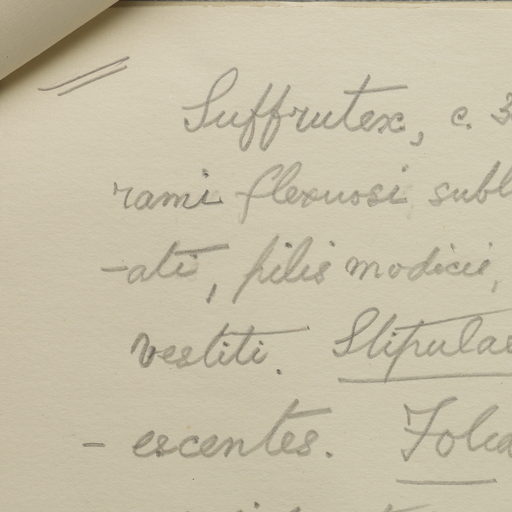 Suffrutex, c. 3
rami flexuosi subl
-ati, pilis modicis,
vestiti. Stipulae
-escentes. Folia